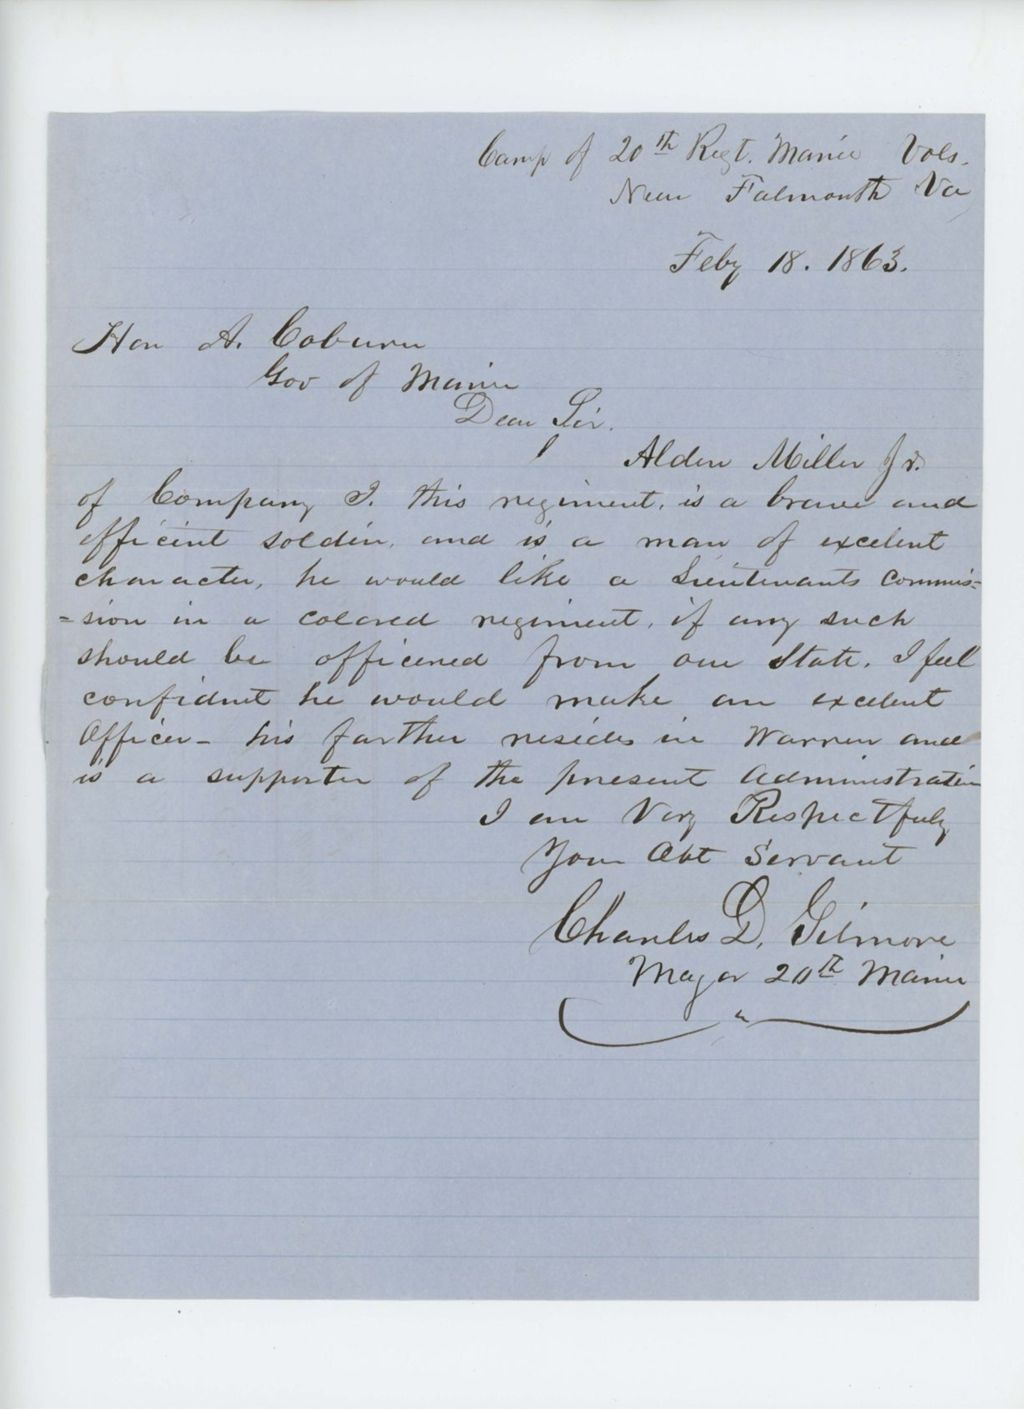 Camp of 20th Regt. Maine Vols.
Near Falmouth Va
Feby 18. 1863.
Hon A. Coburn
Gov of Maine
Dear Sir.
Alden Miller Jr.
of Company I. this regiment, is a brave and
efficint soldier, and is a man of excelent
character, he would like a Lieutenants commis=
=sion in a colored regiment, if any such
should be officered from our State. I feel
confident he would make an excelent
Officer - his farther resides in Warren and
is a supporter of the present administration
I am Very Respectfuly
Your Obt Servant
Charles D. Gilmore
Major 20th Maine